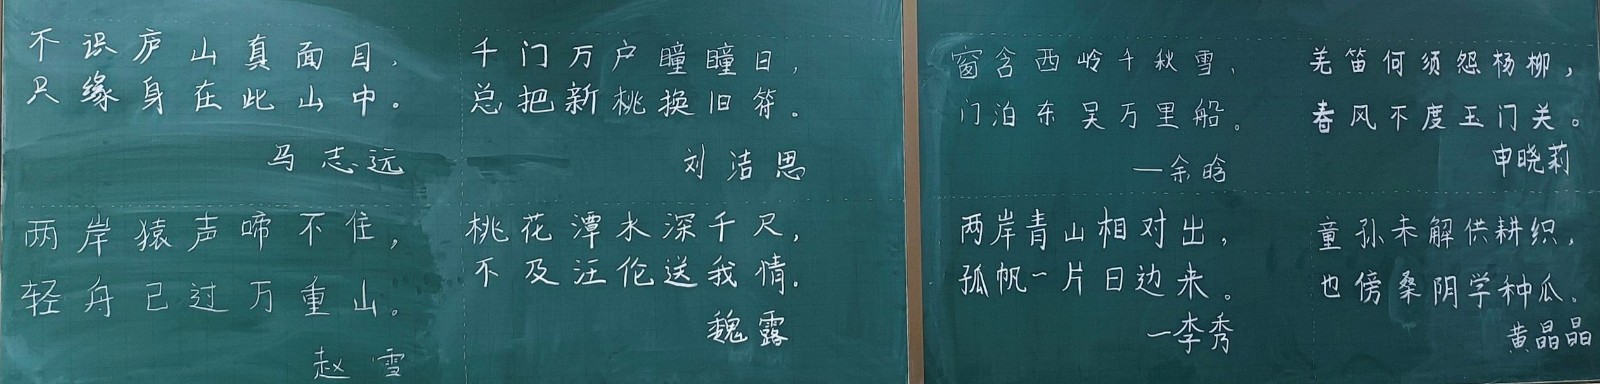 不识庐山真面目，
只缘身在此山中。
马志远
千门万户瞳瞳日，
总把新桃换旧符。
刘洁思
两岸猿声啼不住，
轻舟已过万重山。
赵雪
桃花潭水深千尺，
不及汪伦送我情。
魏露
窗含西岭千秋雪，
门泊东吴万里船。
—余晗
羌笛何须怨杨柳，
春风不度玉门关。
申晓莉
两岸青山相对出，
孤帆一片日边来。
—李秀
童孙未解供耕织，
也傍桑阴学种瓜。
黄晶晶